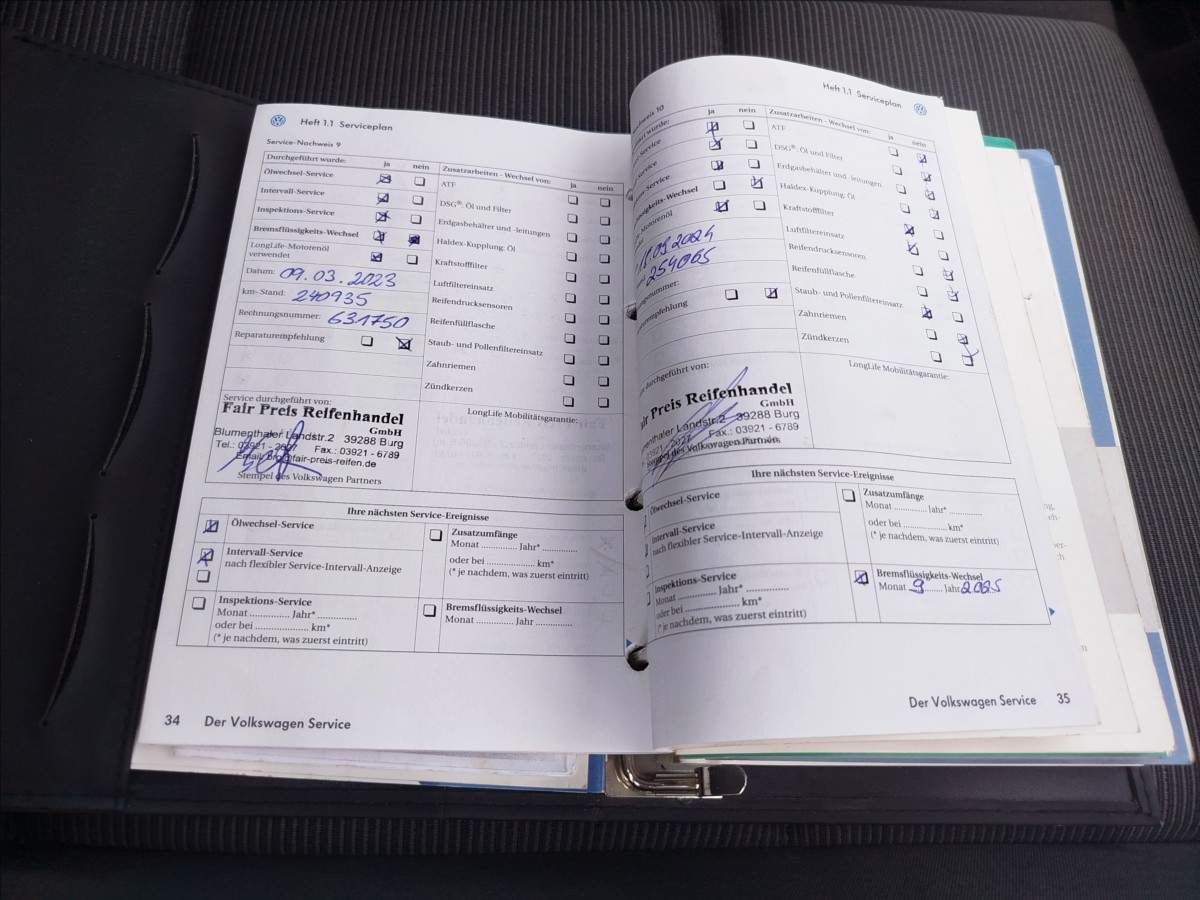 Heft 1.1 Serviceplan
Service-Nachweis 9
Durchgeführt wurde: ja nein
Ölwechsel-Service
Intervall-Service
Inspektions-Service
Bremsflüssigkeits-Wechsel
LongLife-Motorenöl
verwendet
Datum: 09.03.2023
km-Stand: 240935
Rechnungsnummer: 631750
Reparaturempfehlung
Zusatzarbeiten - Wechsel von: ja nein
ATF
DSG®: Öl und Filter
Erdgasbehälter und -leitungen
Haldex-Kupplung: Öl
Kraftstofffilter
Luftfiltereinsatz
Reifendrucksensoren
Reifenfüllflasche
Staub- und Pollenfiltereinsatz
Zahnriemen
Zündkerzen
Service durchgeführt von:
Fair Preis Reifenhandel
GmbH
Blumenthaler Landstr.2 39288 Burg
Tel.: 03921 - Fax.: 03921 - 6789
Email: @fair-preis-reifen.de
Stempel des Volkswagen Partners
LongLife Mobilitätsgarantie:
Ihre nächsten Service-Ereignisse
Ölwechsel-Service
Intervall-Service
nach flexibler Service-Intervall-Anzeige
Inspektions-Service
Monat .............. Jahr* ..............
oder bei .................... km*
(* je nachdem, was zuerst eintritt)
Zusatzumfänge
Monat ............. Jahr* .............
oder bei .................... km*
(* je nachdem, was zuerst eintritt)
Bremsflüssigkeits-Wechsel
Monat .............. Jahr ..............
34 Der Volkswagen Service
Heft 1.1 Serviceplan
10
wurde: ja nein
Service
Service
Service
Wechsel
.09.2024
254065
Zusatzarbeiten - Wechsel von: ja nein
ATF
DSG®: Öl und Filter
Erdgasbehälter und -leitungen
Haldex-Kupplung: Öl
Kraftstofffilter
Luftfiltereinsatz
Reifendrucksensoren
Reifenfüllflasche
Staub- und Pollenfiltereinsatz
Zahnriemen
Zündkerzen
durchgeführt von:
Preis Reifenhandel
GmbH
Landstr.2 39288 Burg
Fax.: 03921 - 6789
Stempel des Volkswagen Partners
LongLife Mobilitätsgarantie:
Ihre nächsten Service-Ereignisse
Ölwechsel-Service
Intervall-Service
nach flexibler Service-Intervall-Anzeige
Inspektions-Service
Monat .............. Jahr* ..............
oder bei .................... km*
(* je nachdem, was zuerst eintritt)
Zusatzumfänge
Monat .......... Jahr* ............
oder bei .................... km*
(* je nachdem, was zuerst eintritt)
Bremsflüssigkeits-Wechsel
Monat 9 Jahr 2025
Der Volkswagen Service 35